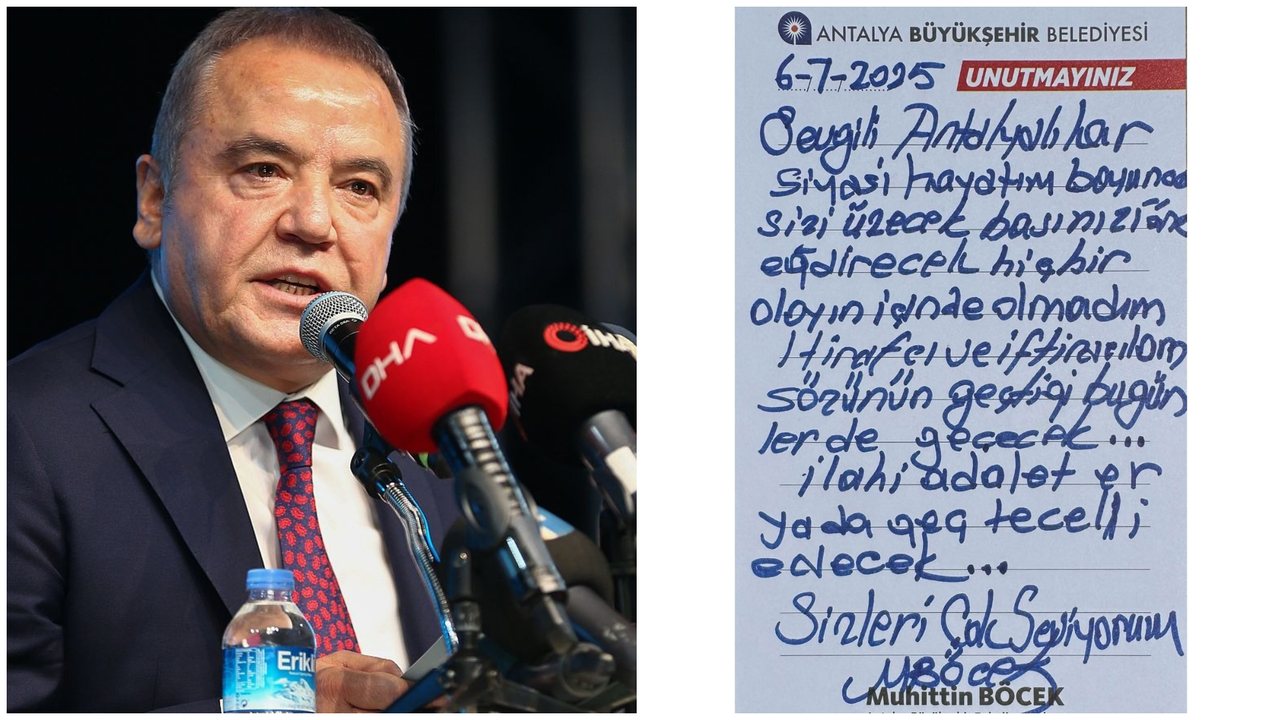 DHA
İHA
Erikli
ANTALYA BÜYÜKŞEHİR BELEDİYESİ
6-7-2025 UNUTMAYINIZ
Sevgili Antalyalılar
siyasi hayatım boyunca
sizi üzecek başınızı öne
eğdirecek hiçbir
olayın içinde olmadım
İtirafçı ve iftiracıların
sözünün geçtiği bugün
lerde geçecek...
ilahi adalet er
yada geç tecelli
edecek...
Sizleri Çok Seviyorum
MBÖCEK
Muhittin BÖCEK